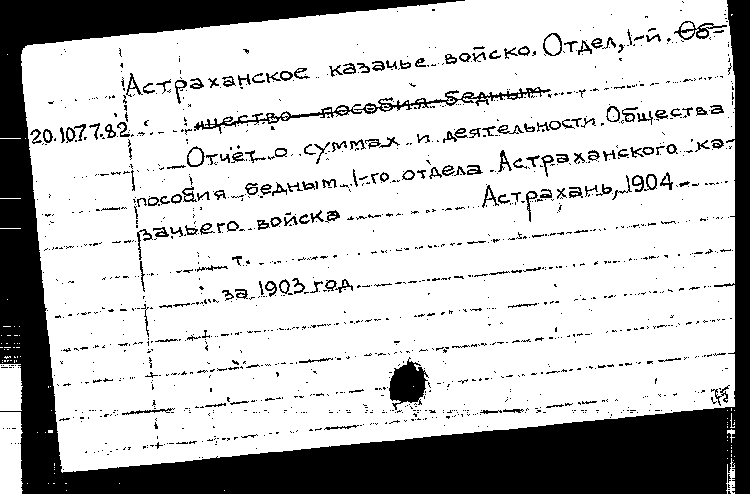 Астраханское казачье войско. Отдел, 1-й. Об-
20.107.7.82 щество пособия бедным.
Отчёт о суммах и деятельности Общества
пособия бедным 1-го отдела Астраханского ка-
зачьего войска Астрахань, 1904 -
т.
за 1903 год